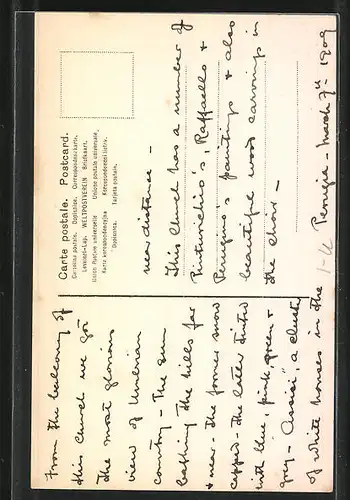 Carte postale. Postcard.
Cartolina postale. Dopisnice. Correspondenzkarte.
Levelező-Lap. WELTPOSTVEREIN Briefkaart.
Union Postale universelle Unione postale universale.
Karta korespondencyjna Korrespondenzlistre.
Dopisnica. Tarjeta postale.
From the balcony of
this Church we got
the most glorious
view of Umbrian
country - The sun
bathing the hills far
& near - The former snow
capped - the later tinted
with blue, pink, green &
grey - Assisi, a cluster
of white houses in the
near distance -
This Church has a number of
Pinturichio's, Raffaello &
Perugino's paintings & also
beautiful wood carvings in
the choir -
Perugia - March 7th 1909